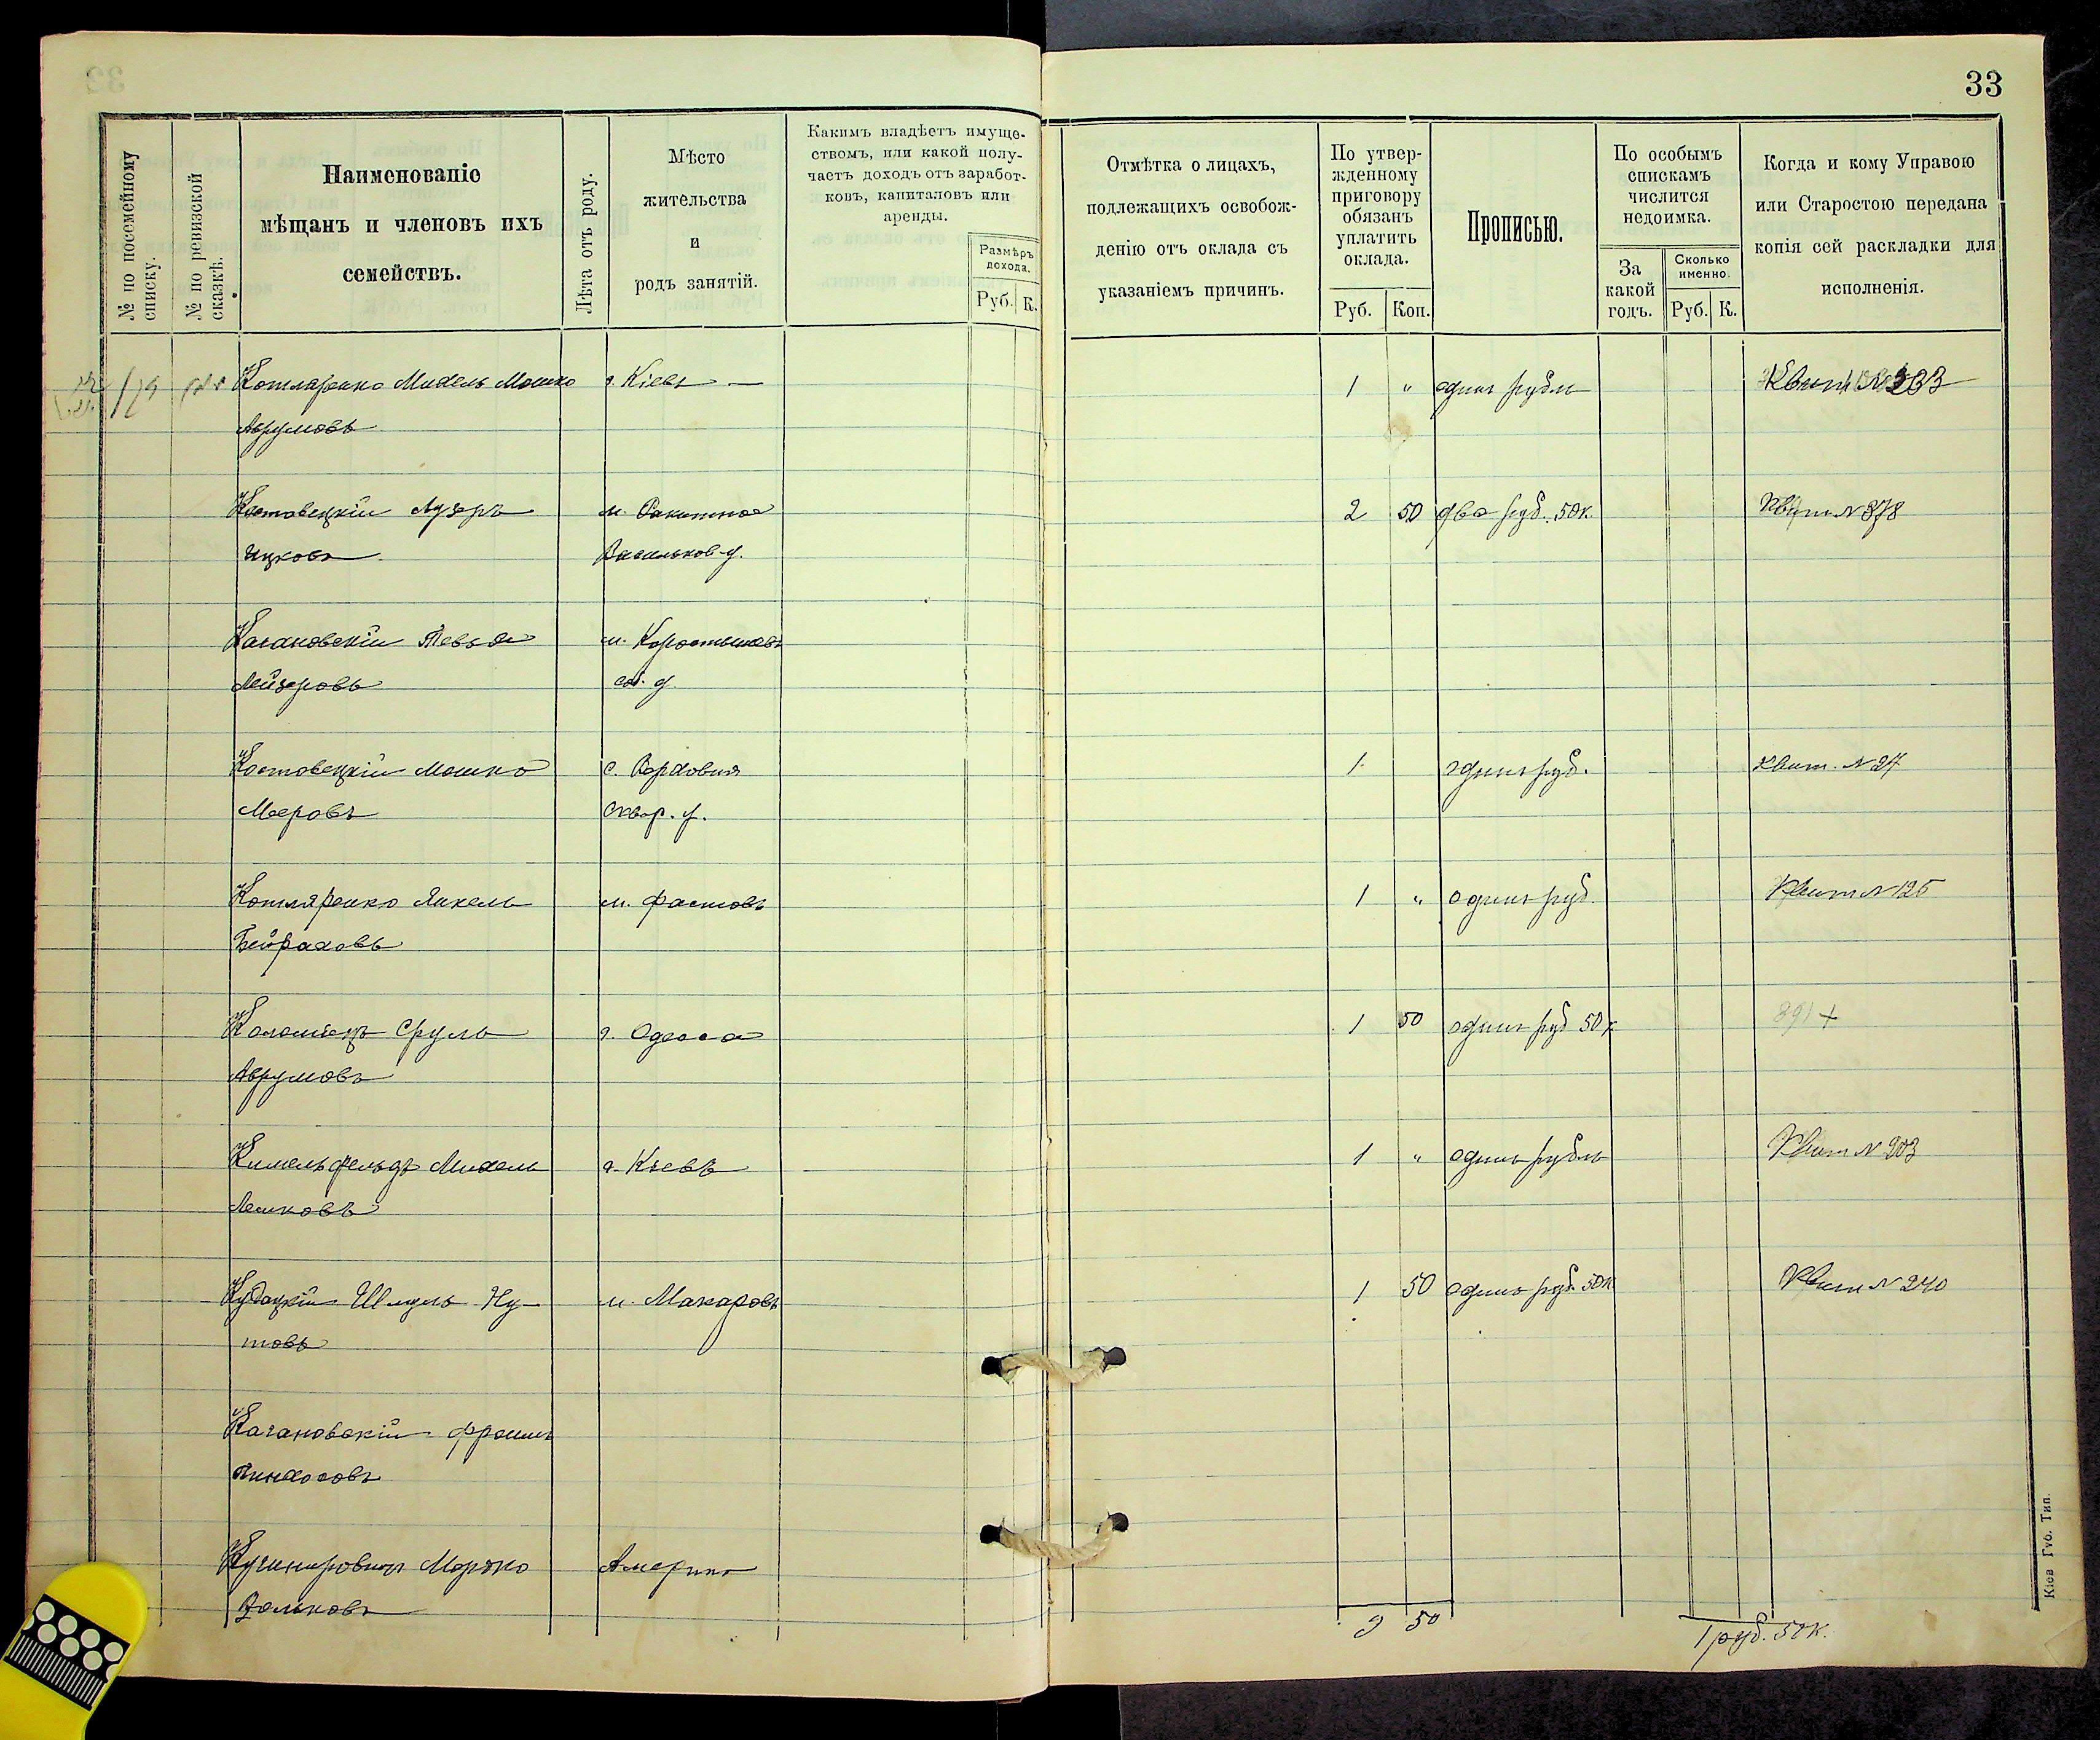 33
№ по посемейному
списку.
№ по ревизской
сказкѣ.
Наименованіе
мѣщанъ и членовъ ихъ
семействъ.
Лѣта отъ роду.
Мѣсто
жительства
и
родъ занятій.
Какимъ владѣетъ имуще-
ствомъ, или какой полу-
чаетъ доходъ отъ заработ-
ковъ, капиталовъ или
аренды.
Размѣръ
дохода.
Руб. К.
Отмѣтка о лицахъ,
подлежащихъ освобож-
денію отъ оклада съ
указаніемъ причинъ.
По утвер-
жденному
приговору
обязанъ
уплатить
оклада.
Руб. Коп.
Прописью.
По особымъ
спискамъ
числится
недоимка.
За
какой
годъ.
Сколько
именно.
Руб. К.
Когда и кому Управою
или Старостою передана
копія сей раскладки для
исполненія.
Котляренко Михель Мошко г. Кіевъ — 1 " одинъ рубль Квит №
Аврумовъ
Костовецкій Лузеръ м. Ракитное 2 50 два руб. 50 к. Квит № 378
Ицковъ Васильков. у.
Кагановскій Тевья м. Коростышевъ
Лейзеровъ
Костовецкій Мошко с. Верховня 1 одинъ руб. Квит. № 27
Меровъ Сквир. у.
Котляренко Янкель м. Фастовъ 1 " одинъ руб. Квит № 125
Бейраховъ
Коломіецъ Сруль г. Одесса 1 50 одинъ руб 50 к 891 +
Аврумовъ
Кимельфельдъ Михель г. Кіевъ 1 " одинъ рубль Квит № 203
Лейковъ
Кудацкій Шмуль Ну- м. Макаровъ 1 50 одинъ руб. 50 к Квит № 240
товъ
Кагановскій Фроимъ
Пинхосовъ
Кушнировичъ Мордко Америка
Вольковъ
9 50
1 руб. 50 к.
Кіев Губ. Тип.